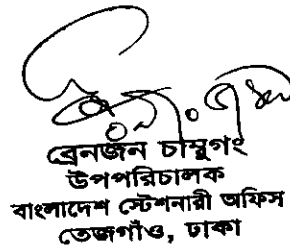 ব্রেনজন চাম্বুগং
উপপরিচালক
বাংলাদেশ স্টেশনারী অফিস
তেজগাঁও, ঢাকা